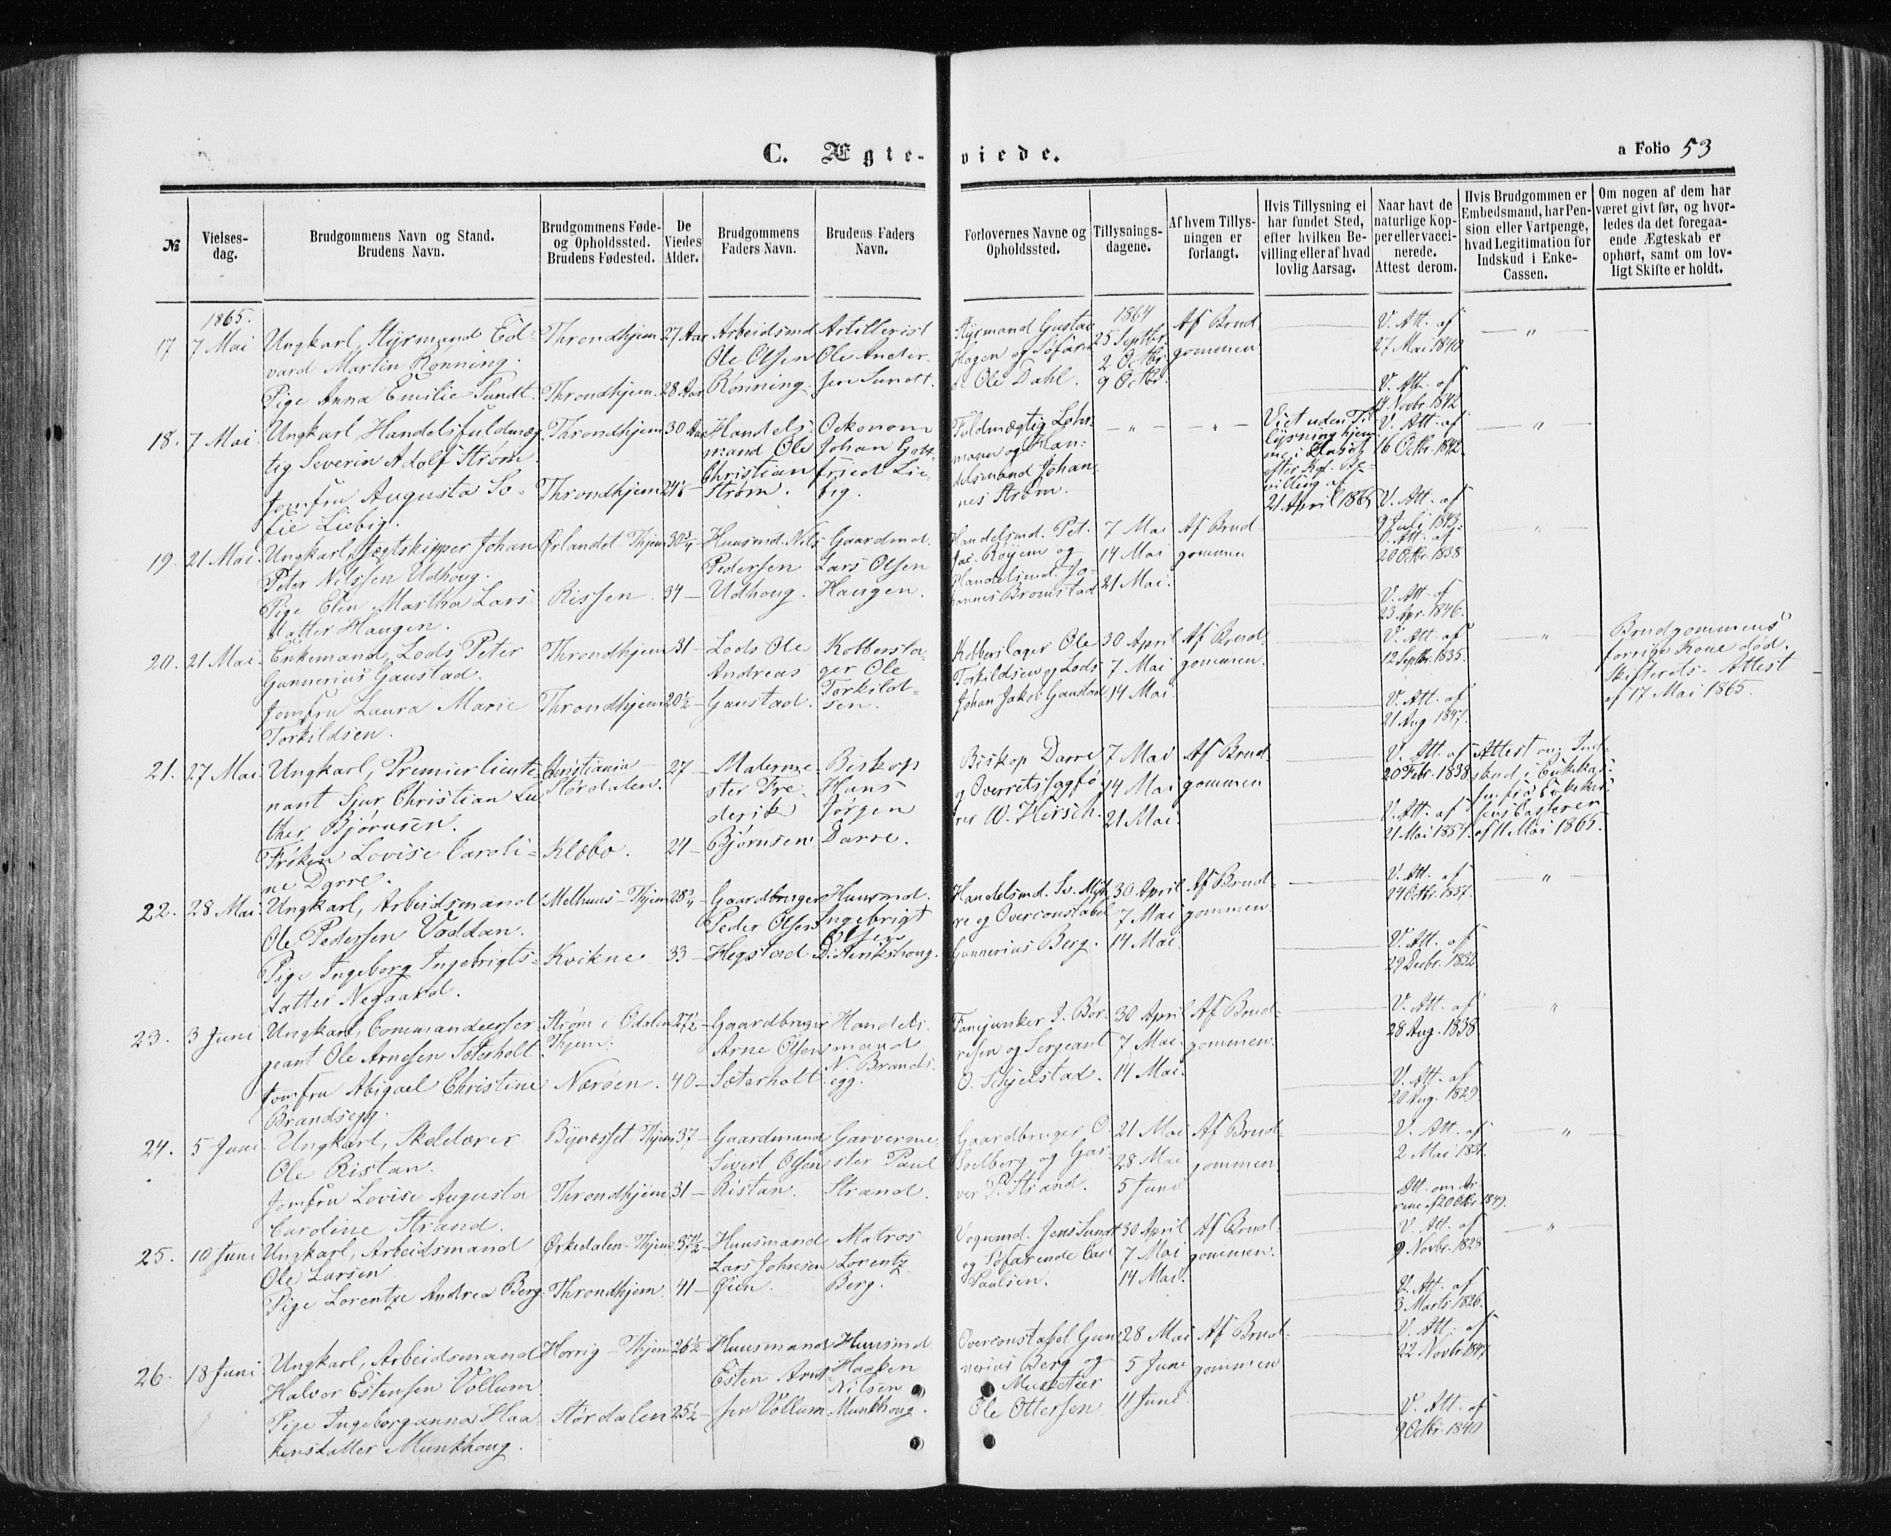 C. Ægteviede.
a Folio 53
№
Vielses-
dag.
Brudgommens Navn og Stand.
Brudens Navn.
Brudgommens Føde-
og Opholdssted.
Brudens Fødested.
De
Viedes
Alder.
Brudgommens
Faders Navn.
Brudens Faders
Navn.
Forlovernes Navne og
Opholdssted.
Tillysnings-
dagene.
Af hvem Tillys-
ningen er
forlangt.
Hvis Tillysning ei
har fundet Sted,
efter hvilken Be-
villing eller af hvad
lovlig Aarsag.
Naar havt de
naturlige Kop-
per eller vacci-
nerede.
Attest derom.
Hvis Brudgommen er
Embedsmand, har Pen-
sion eller Vartpenge,
hvad Legitimation for
Indskud i Enke-
Cassen.
Om nogen af dem har
været givt før, og hvor-
ledes da det foregaa-
ende Ægteskab er
ophørt, samt om lov-
ligt Skifte er holdt.
1865.
17 7 Mai
Ungkarl, Styrmand Ed-
vard Martin Rönning.
Pige Anna Emilie Sundt.
Throndhjem 27 Aar
Throndhjem. 28 Aar
Arbeidsmd
Ole Olsen
Rönning.
Artillerist
Ole Ander-
sen Sundt.
Styrmand Gustav
Hagen og Söfarende
Ole Dahl.
1864
25 Septbr.
2 Octbr.
9 Octbr.
Af Brud
gommen
V. Att. af
27 Mai 1840
V. Att. af
Novbr. 1842
18. 7 Mai
Ungkarl, Handelsfuldmæg
tig Severin Adolf Ström
Jomfru Augusta So-
fie Liebig.
Throndhjem 30 Aar
Throndhjem
Handels-
mand Ole
Christian
Ström.
Oekonom
Johan Gott-
fried Lie-
big.
Fuldmægtig Lehr-
mann og Han-
delsmand Johan-
nes Ström.
Viet uden Til
lysning hjem-
me i Huset
efter Kgl. Be-
villing af
21 April 1865
V. Att. af
16 Octbr. 1842
V. Att. af
9 Juli 1843
19. 21 Mai
Ungkarl, Jægtskipper Johan
Peter Nilssen Udhoug.
Pige Elen Martha Lars
datter Haugen.
Ørlandet Thjem 30¾
Rissen. 34
Huusmd. Nils
Pedersen
Udhoug.
Gaardmd.
Lars Olsen
Haugen.
Handelsmd. Pet.
Jac. Röyem og
Handelsmd. Jo-
hannes Bromstad
7 Mai
14 Mai
21 Mai.
Af Brud-
gommen
V. Att. af
20 Octbr. 1838
V. Att. af
23 Apr. 1846.
20. 21 Mai
Enkemand, Lods Peter
Gunnerius Gaustad.
Jomfru Laura Marie
Torkildsen.
Throndhjem 31
Throndhjem 20½
Lods Ole
Andreas
Gaustad.
Kobbersla-
ger Ole
Torkild-
sen.
Kobberslager Ole
Torkildsen og Lods
Johan Jakob Gaustad
30 April
7 Mai
14 Mai.
Af Brud-
gommen.
V. Att. af
12 Septbr. 1835.
V. Att. af
21 Aug. 1847.
Brudgommens
forrige Kone död.
Skifterets-Attest
af 17 Mai 1865.
21. 27 Mai
Ungkarl, Premierlieute-
nant Sjur Christian Lu
ther Björnsen.
Fröken Lovise Caroli-
ne Darre.
Christiania
Stördalen. 27
Klæbo. 24
Malerme-
ster Fre-
derik
Björnsen
Biskop
Hans
Jörgen
Darre.
Biskop Darre
og Overretssagfö-
rer W. Hirsch.
7 Mai
14 Mai
21 Mai.
Af Brud
gommen
V. Att. af
20 Febr. 1838
V. Att. af
21 Mai 1857.
Attest om Ind-
skud i Enkekas-
sen fra Enkekas-
sens Casserer
af 11 Mai 1865.
22. 28 Mai
Ungkarl, Arbeidsmand
Ole Pedersen Vaddan.
Pige Ingeborg Ingebrigts-
datter Negaard.
Melhuus-Thjem 28¾
Kvikne 33
Gaardbruger
Peder Olsen
Hegstad
Huusmd.
Ingebrigt
Olsen
Henrikshoug.
Handelsmd. Sv. Myh-
re og Overconstabel
Gunnerius Berg.
30 April
7 Mai
14 Mai.
Af Brud-
gommen
V. Att. af
24 Octbr. 1837.
V. Att. af
29 Decbr. 1832
23. 3 Juni
Ungkarl, Commandeerser
geant Ole Arnesen Sæterholt
Jomfru Abigael Christine
Brandsegg.
Ström i Odalen
Thjem. 27½
Næröen. 40
Gaardbruger
Arne Olsen
Sæterholt
Handels-
mand
N. Brands-
egg.
Fanejunker J. Bör-
resen og Sergeant
O. Schjelstad.
30 April
7 Mai
14 Mai.
Af Brud-
gommen.
V. Att. af
28 Aug. 1838
V. Att. af
20 Aug. 1829
24. 5 Juni
Ungkarl,
Ole Ristan.
Jomfru Lovise Augusta
Caroline Strand.
Bynæsset Thjem 37
Throndhjem 31
Gaardmand
Sivert Olsen
Ristan.
Garverme-
ster Paul
Strand.
Gaardbruger O.
Solberg og Gar-
ver P. Strand.
21 Mai
28 Mai
5 Juni
Af Brud-
gommen.
V. Att. af
2 Mai
Att. om
af 20 Octbr. 1849.
25. 10 Juni
Ungkarl, Arbeidsmand
Ole Larsen
Pige Lorentze Andrea Berg
Ørkedalen-Thjem 37½
Throndhjem. 41
Huusmand
Lars Johnsen
Øien.
Matros
Lorentz
Berg.
Vognmd. Jens Sundt
og Söfarende Carl
Paulsen.
30 April
7 Mai
14 Mai.
Af Brud-
gommen.
V. Att. af
9 Novbr. 1828
V. Att. af
3 Marts 1826.
26. 18 Juni
Ungkarl, Arbeidsmand
Halvor Estensen Vollum.
Pige Ingeborganna Haa
kensdatter Munkhoug.
Horrig-Thjem 26½
Stördalen 25½
Huusmand
Esten Arnt-
sen Vollum
Huusmd
Haaken
Nilsen
Munkhoug.
Overconstabel Gun-
nerius Berg og
Musketeer
Ole Ottersen
28 Mai
5 June
11 June
Af Brud-
gommen
V. Att. af
22 Novbr. 1847
V. Att. af
9 Octbr. 1840